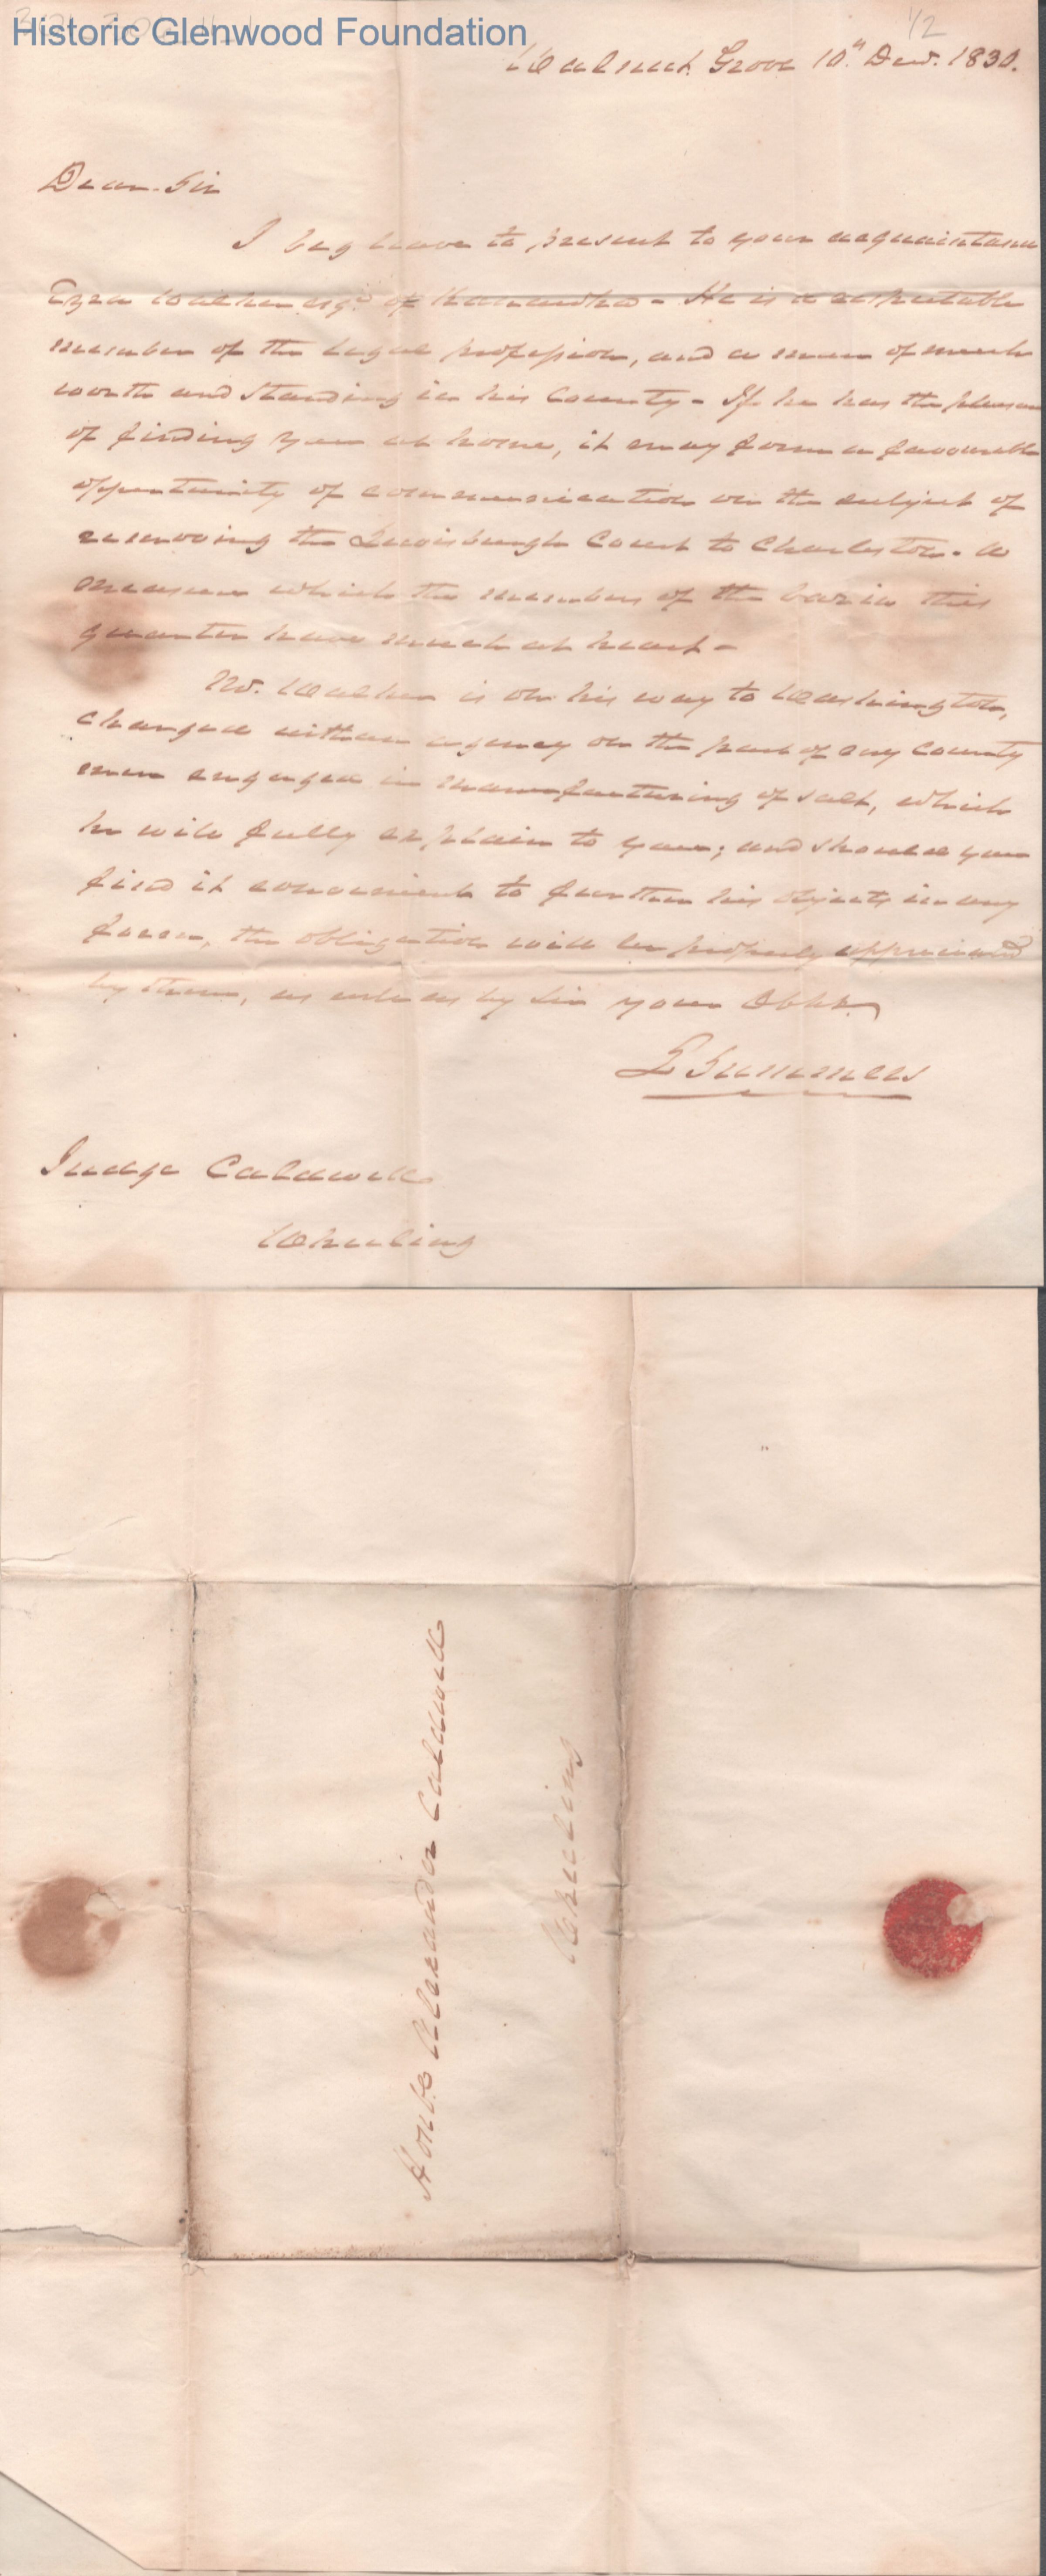 Historic Glenwood Foundation
1/2
Walnut Grove 10th Decr. 1830.
Dear Sir
I beg leave to present to your acquaintance
Ezra Walker esqr. of Kanawha - He is a respectable
member of the legal profession, and a man of much
worth and standing in his County - If he has the pleasure
of finding you at home, it may form a favourable
oppertunity of communication on the subject of
removing the Lewisburgh Court to Charleston. A
measure which the members of the bar in this
quarter have much at heart -
Mr. Walker is on his way to Washington,
charged with an agency on the part of my County
men engaged in manufacturing of salt, which
he will fully explain to you; and should you
find it convenient to further his objects in any
form, the obligation will be properly appreciated
by them, as well as by Sir your Obt
L Summers
Judge Caldwell
Wheeling
Honble Alexander Caldwell
Wheeling